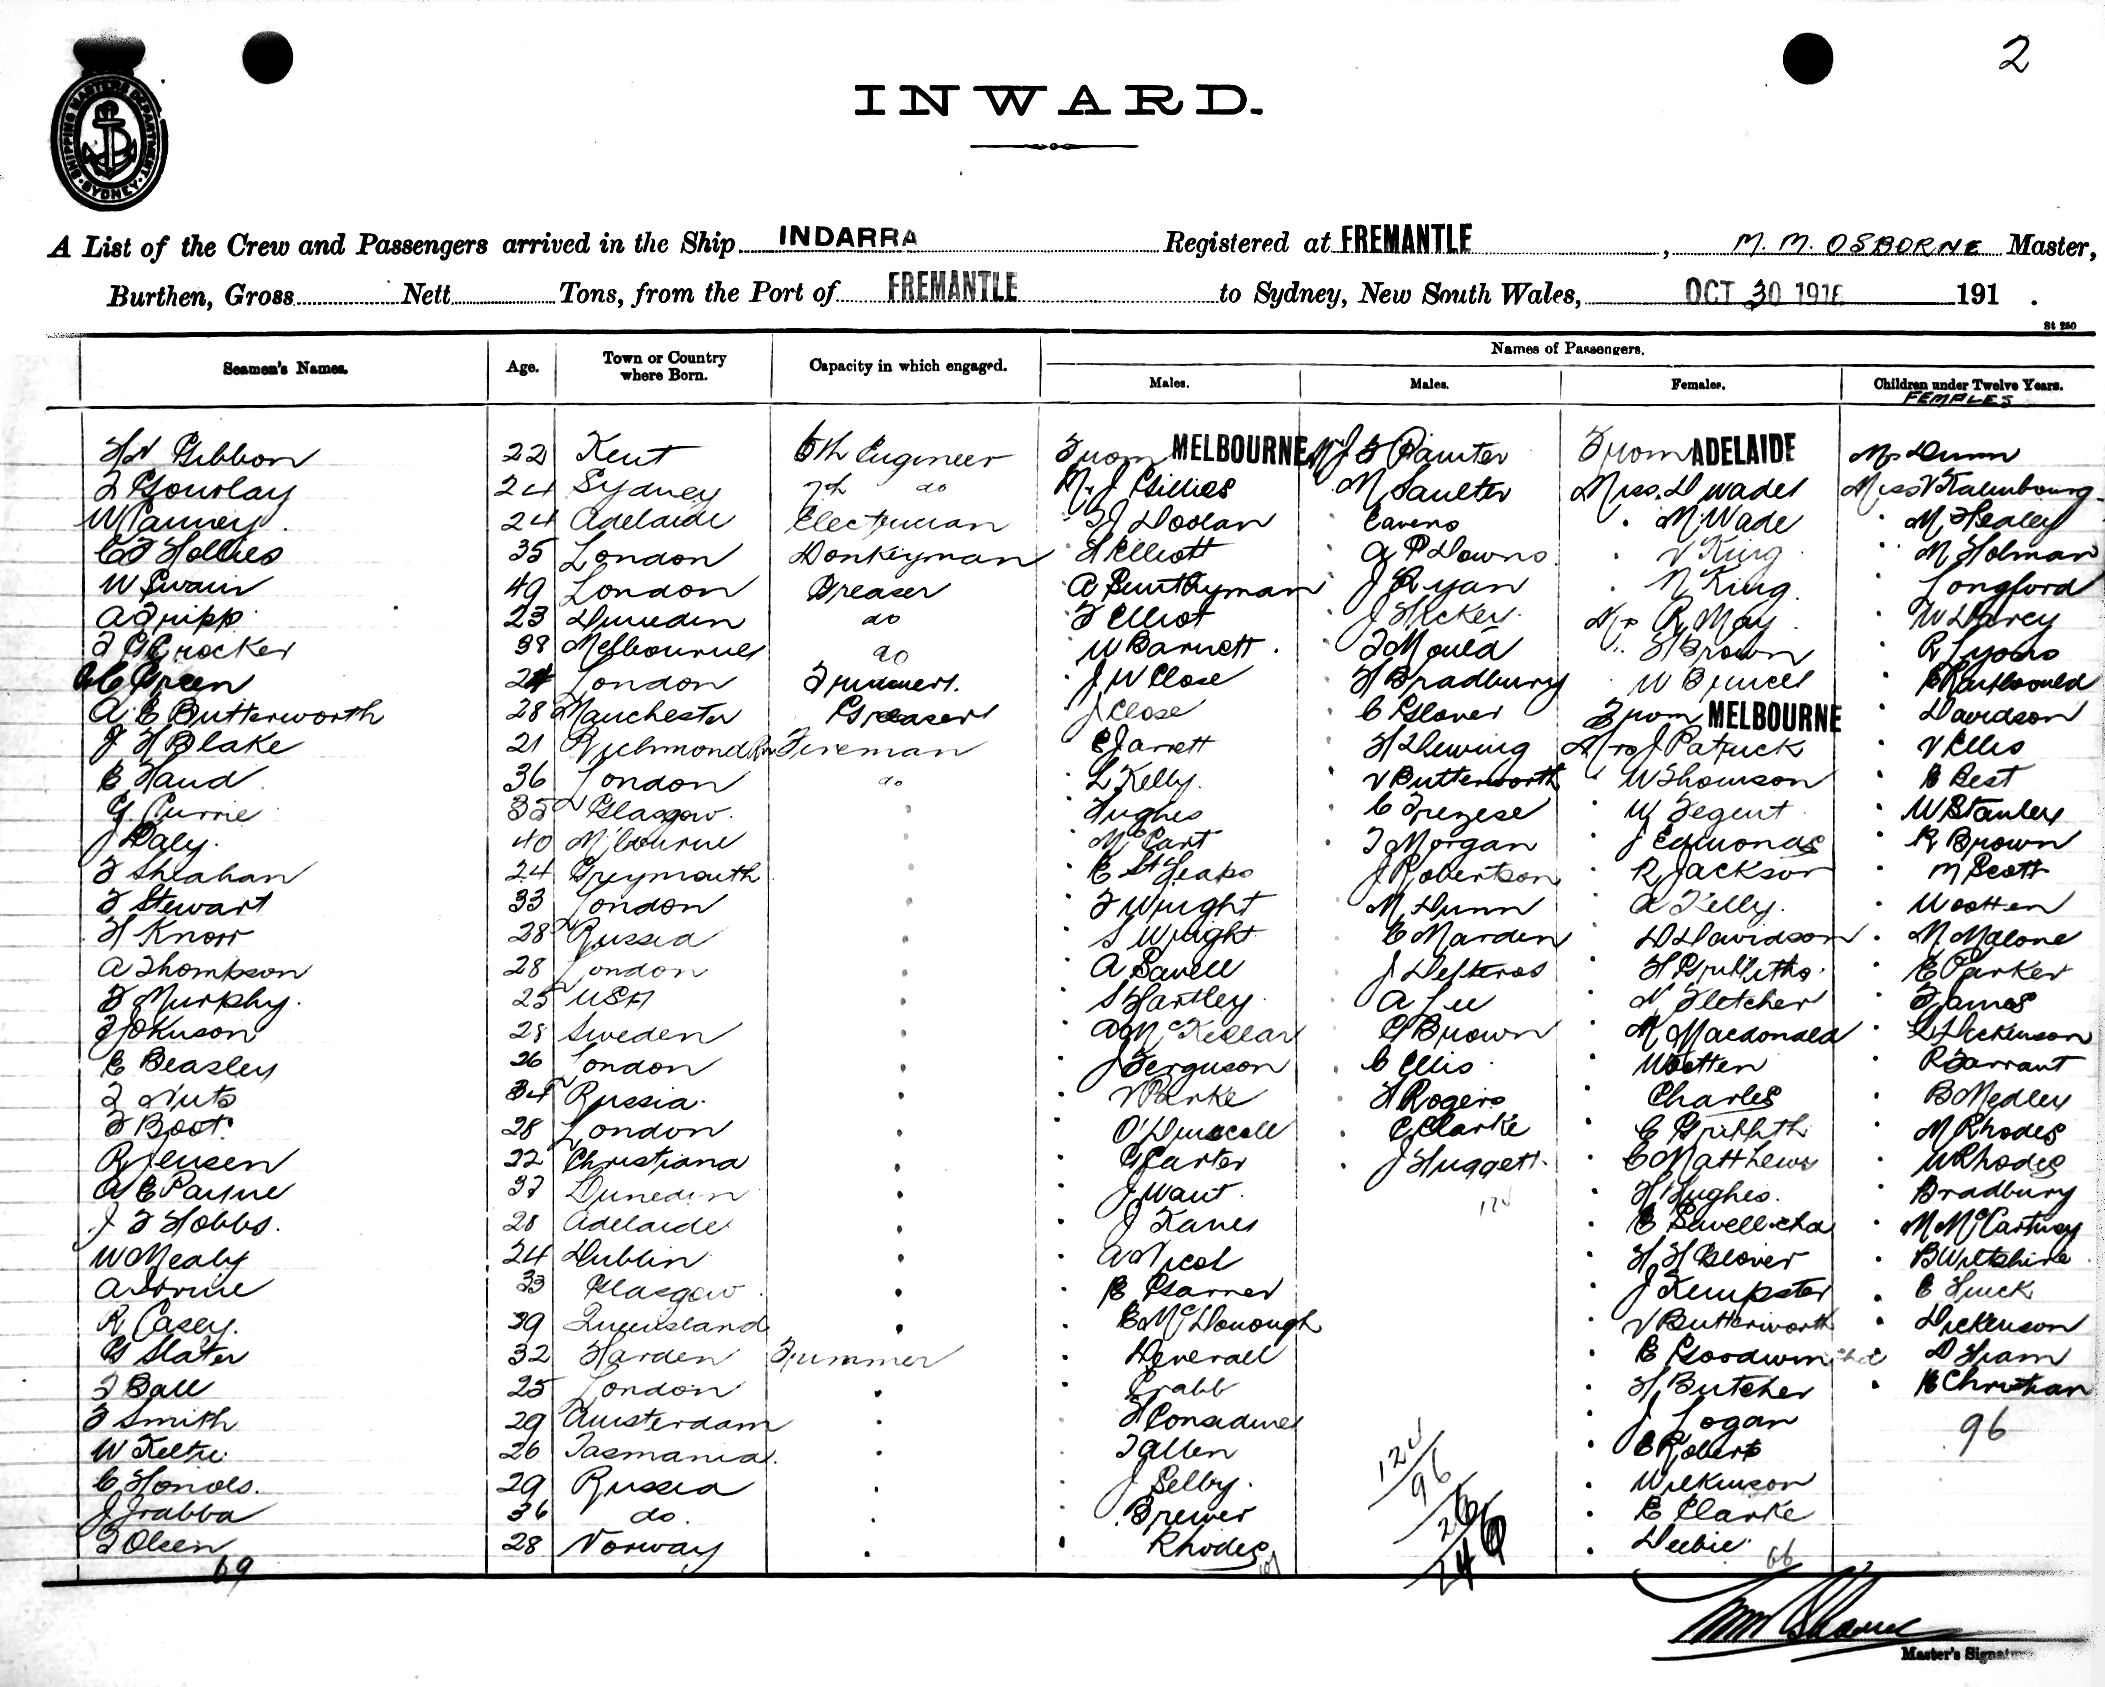 2
SHIPPING MASTERS DEPARTMENT
SYDNEY
INWARD.
A List of the Crew and Passengers arrived in the Ship INDARRA Registered at FREMANTLE, M. M. OSBORNE Master,
Burthen, Gross Nett Tons, from the Port of FREMANTLE to Sydney, New South Wales, OCT 30 1916 191 .
St 250
Seamen's Names. Age. Town or Country where Born. Capacity in which engaged. Names of Passengers.
Males. Males. Females. Children under Twelve Years.
FEMALES
Gibbon 22 Kent 6th Engineer From MELBOURNE Mr J F Painter From ADELAIDE Mrs Dunn
Gourlay 24 Sydney 7th do Mr J Gillies M Saulter Miss D Wade Miss V
W 24 Adelaide Electrician Doolan Cavens M Wade M Healey
Hollies 35 London Donkeyman H Elliott A P Downs V King M Holman
W Swain 49 London Greaser A J Ryan N King Longford
A Tripp 23 Dunedin do F Elliot J Hickey R May W Darcy
Crocker 38 Melbourne do W Barnett T Mould H Brown R Lyons
C Green London Trimmer J W Close H Bradbury W Bruce
A E Butterworth 28 Manchester Greaser J Close C Glover From MELBOURNE Davidson
J H Blake 21 Richmond Fireman E Jarrett H Dewing Mrs J Patrick V Ellis
E Hand 36 London do L Kelly V Butterworth W Thomson E Best
G. Currie 35 Glasgow Hughes C Trezese W Segent W Stanley
J Daly 40 Mlbourne McCart T Morgan J Edmonds R Brown
F Sheahan 24 Greymouth E St J Robertson R Jackson M Scott
F Stewart 33 London F Wright M Dunn A Kelly Wootten
H Knorr 28 Russia S Wright E Marden D Davidson M Malone
A Thompson 28 London A Savell J H Griffiths E Parker
F Murphy. 25 USA S Hartley A Lee N Fletcher James
Johnson 28 Sweden A McKellar G Brown M Macdonald Dickinson
E Beasley 26 London J Ferguson C Ellis Wootten R Tarrant
34 Russia H Rogers Charles B Medley
F Boot 28 London O'Driscoll C Clarke E Griffith M Rhodes
R Jensen 22 Christiana G Carter J Huggett E Matthews W Rhodes
A E Payne 37 Dunedin J Want H Hughes Bradbury
J F Hobbs. 28 Adelaide J Kane E Sewell & chd M McCartney
W Mealy 24 Dublin A Nicol H H Glover B Wiltshire
A 33 Glasgow E Garner J Kempster E Huck
R Casey. 39 Queensland E McDonough V Butterworth Dickenson
G Slater 32 Harden Trimmer Deverall E Goodwin D Hiam
T Ball 25 London Crabb H Butcher E Christian
F Smith 29 Amsterdam H Considine J Logan 96
W Keltie 26 Tasmania. T Allen E Roberts
C 29 Russia J Selby. Wilkinson
J 36 do. Brewer E Clarke
F Olsen 28 Norway Rhodes Deebie 66
69
124
96
26
246
Master's Signature